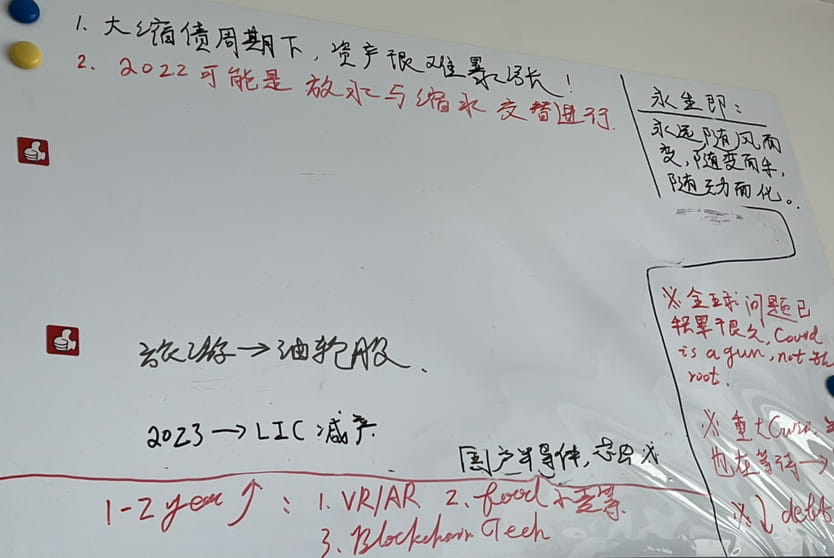 1. 大缩债周期下，资产很难暴增长！
2. 2022可能是放水与缩水交替进行.
永生即：
永远随风而
变,随变而生,
随动而化。
※全球问题已
积累于很久, Covid
is a gun, not
root.
※重大
也在等待→
※↓ debt
旅游→油轮股、
2023→LIC减产
国产半导体,
1-2 year↑: 1. VR/AR 2. food
3. Blockchain Tech